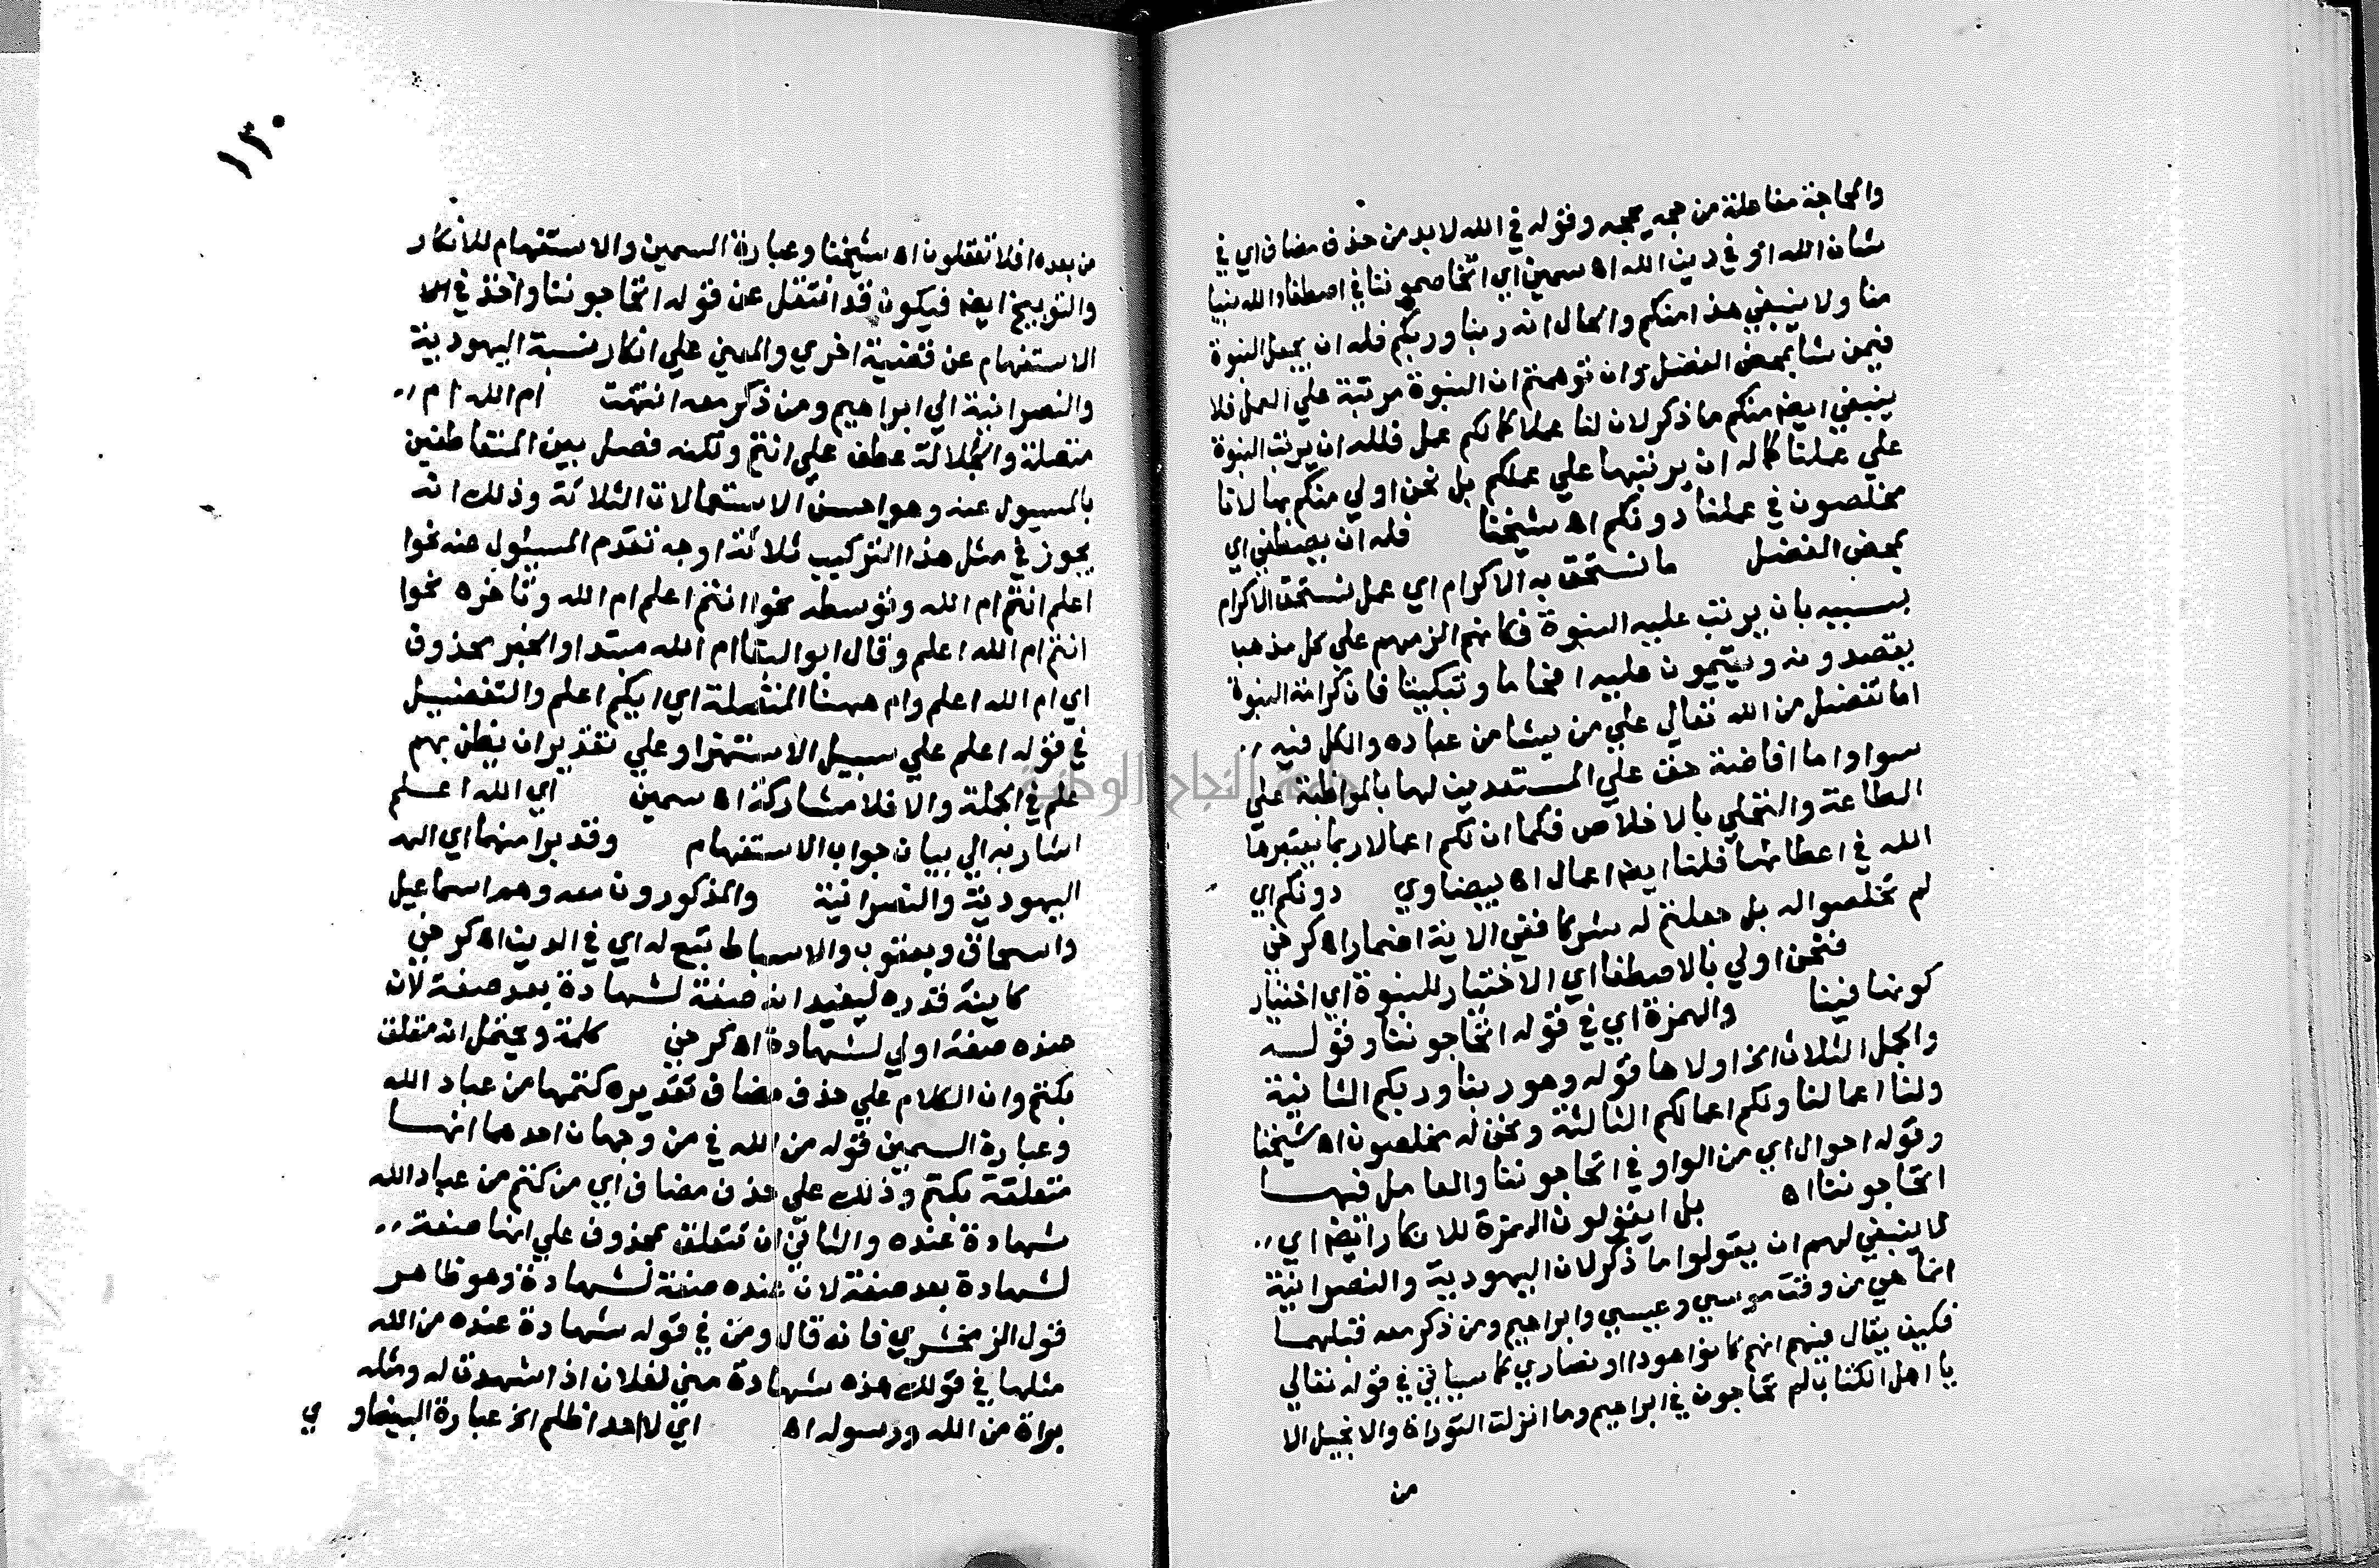 والمحاجة مفاعلة من حجه يحجه وقوله في الله لا بد من حذف مضاف اي في
شان الله او في دين الله اه سمين اي اتخاصموننا في اصطفاء الله نبيا
منا ولا ينبغي هذا منكم والحال انه ربنا وربكم فله ان يجعل النبوة
فيمن شا بمحض الفضل وان توهمتم ان النبوة مرتبة علي العمل فلا
ينبغي ايضا منكم ما ذكر لان لنا عملا كما لكم عمل فلله ان يرتب النبوة
علي عملنا كما له ان يرتبها علي عملكم بل نحن اولي منكم بها لاننا
مخلصون في عملنا دونكم اه شيخنا فله ان يصطفي اي
بمحض الفضل ما نستحق به الاكرام اي عمل نستحق الاكرام
بسببه بان يرتب عليه النبوة فكانهم الزمهم علي كل مذهبا
يقصدونه وييتمون عليه افحاما وتبكيتا فان كرامة النبوة
اما تفضل من الله تعالي علي من يشا من عباده والكل فيه
سوا واما افاضة حق علي المستعدين لها بالمواظبة علي
الطاعة والتحلي بالاخلاص فكما ان لكم اعمالا ربما يعتبرها
الله في اعطائها فلنا ايضا اعمال اه بيضاوي دونكم اي
لم تخلصوا له بل جعلتم له شركا ففي الاية اضمار اه كرخي
فنحن اولي بالاصطفا اي الاختيار للنبوة اي اختيار
كونها فينا والهمزة اي في قوله اتحاجوننا وقوله
والجمل الثلاث الخ اولاها قوله وهو ربنا وربكم الثانية
ولنا اعمالنا ولكم اعمالكم الثالثة ونحن له مخلصون اه شيخنا
وقوله احوال اي من الواو في اتحاجوننا والعامل فيها
اتحاجوننا اه بل ايقولون الهمزة للانكار ايضا اي
لا ينبغي لهم ان يقولوا ما ذكر لان اليهودية والنصرانية
انما هي من وقت موسي وعيسي وابراهيم ومن ذكر معه قبلهما
فكيف يقال فيهم انهم كانوا هودا او نصاري كما سياتي في قوله تعالي
يا اهل الكتاب لم تحاجون في ابراهيم وما انزلت التوراة والانجيل الا
من
١٣٠
من بعده افلا تعقلون اه شيخنا وعبارة السمين والاستفهام للانكار
والتوبيخ ايضا فيكون قد انتقل عن قوله اتحاجوننا واخذ في الا
الاستفهام عن قضية اخري والمعني علي انكار نسبة اليهودية
والنصرانية الي ابراهيم ومن ذكر معه انتهت ام الله ام
متصلة والجلالة عطف علي انتم ولكنه فصل بين المتعاطفين
بالمسيول عنه وهو احسن الاستعمالات الثلاثة وذلك انه
يجوز في مثل هذا التركيب ثلاثة اوجه تقدم المسيول عنه نحوا
اعلم انتم ام الله وتوسطه نحوا انتم اعلم ام الله وتاخره نحوا
انتم ام الله اعلم وقال ابو البقا ام الله مبتدا والخبر محذوف
اي ام الله اعلم وام ههنا المتصلة اي ايكم اعلم والتفضيل
في قوله اعلم علي سبيل الاستهزا وعلي تقدير ان يظن بهم
علم في الجملة والا فلا مشاركة اه سمين اي الله اعلم
اشار به الي بيان جواب الاستفهام وقد برا منهما اي اليه
اليهودية والنصرانية والمذكورون معه وهم اسماعيل
واسحاق ويعقوب والاسباط تبع له اي في الدين اه كرخي
كاينة قدره ليفيد انه صفة لشهادة بعد صفة لان
عنده صفة اولي لشهادة اه كرخي كلمة ويحتمل انه متعلق
بكتم وان الكلام علي حذف مضاف تقديره كتمها من عباد الله
وعبارة السمين قوله من الله في من وجهان احدهما انها
متعلقة بكتم وذلك علي حذف مضاف اي من كتم من عباد الله
شهادة عنده والثاني ان تتعلق بمحذوف علي انها صفة
لشهادة بعد صفة لان عنده صفة لشهادة وهو ظاهر
قول الزمخشري فانه قال ومن في قوله شهادة عنده من الله
مثلها في قولك هذه شهادة مني لفلان اذا شهدت له ومثله
براة من الله ورسوله اه اي لا احد اظلم الخ عبارة البيضاوي